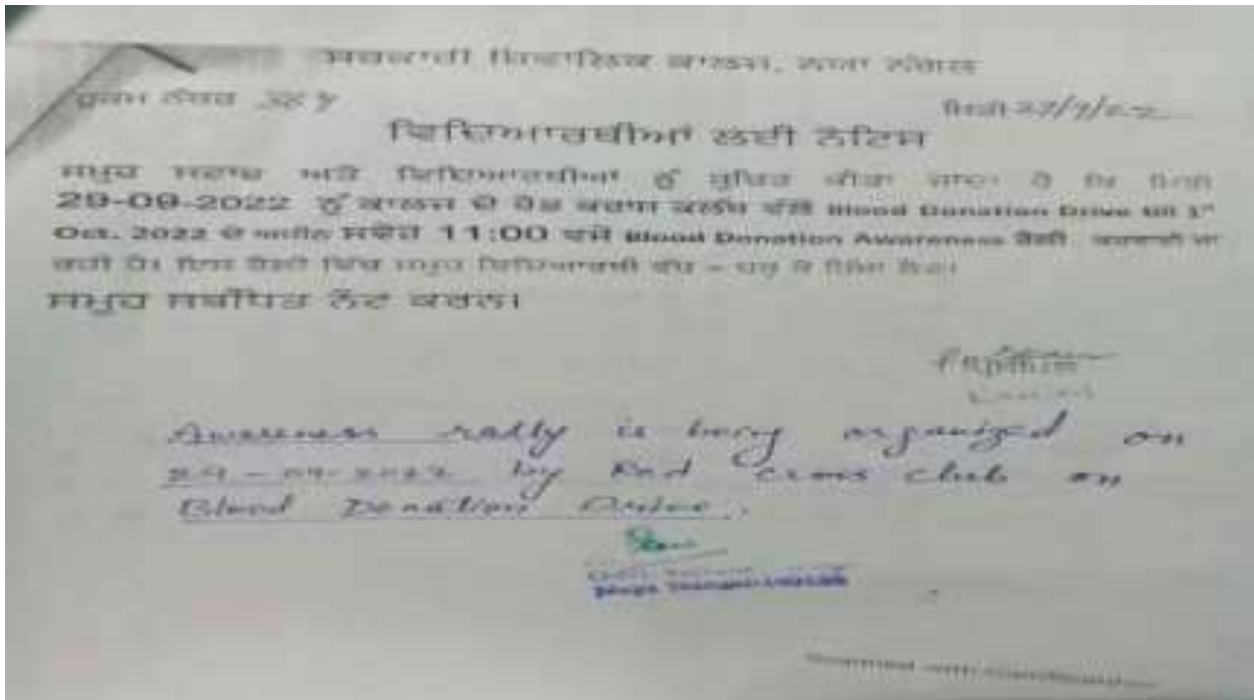 ਸਰਕਾਰੀ ਸ਼ਿਵਾਲਿਕ ਕਾਲਜ, ਨਯਾ ਨੰਗਲ
ਹੁਕਮ ਨੰਬਰ ਮਿਤੀ 27/9/22
ਵਿਦਿਆਰਥੀਆਂ ਲਈ ਨੋਟਿਸ
ਸਮੂਹ ਸਟਾਫ ਅਤੇ ਵਿਦਿਆਰਥੀਆਂ ਨੂੰ ਸੂਚਿਤ ਕੀਤਾ ਜਾਂਦਾ ਹੈ ਕਿ ਮਿਤੀ
29-09-2022 ਨੂੰ ਕਾਲਜ ਦੇ ਰੈਡ ਕਰਾਸ ਕਲੱਬ ਵੱਲੋਂ Blood Donation Drive till 1st
Oct. 2022 ਦੇ ਅਧੀਨ ਸਵੇਰੇ 11:00 ਵਜੇ Blood Donation Awareness ਰੈਲੀ ਕਰਵਾਈ ਜਾ
ਰਹੀ ਹੈ। ਇਸ ਰੈਲੀ ਵਿੱਚ ਸਮੂਹ ਵਿਦਿਆਰਥੀ ਵੱਧ – ਚੜ੍ਹ ਕੇ ਹਿੱਸਾ ਲੈਣ।
ਸਮੂਹ ਸਬੰਧਿਤ ਨੋਟ ਕਰਨ।
Awareness rally is being organized on
29-09-2022 by Red Cross club on
Blood Donation Drive.
Scanned with CamScanner